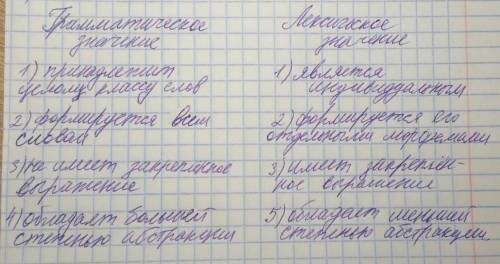 Грамматическое
значение
1) принадлежит
целому классу слов
2) формируется всем
словам
3) не имеет закрепленное
выражение
4) обладает большей
степенью абстракции
Лексическое
значение
1) является
индивидуальным
2) формируется его
отдельными морфемами
3) имеет закреплён-
ное выражение
5) обладает меньшей
степенью абстракции